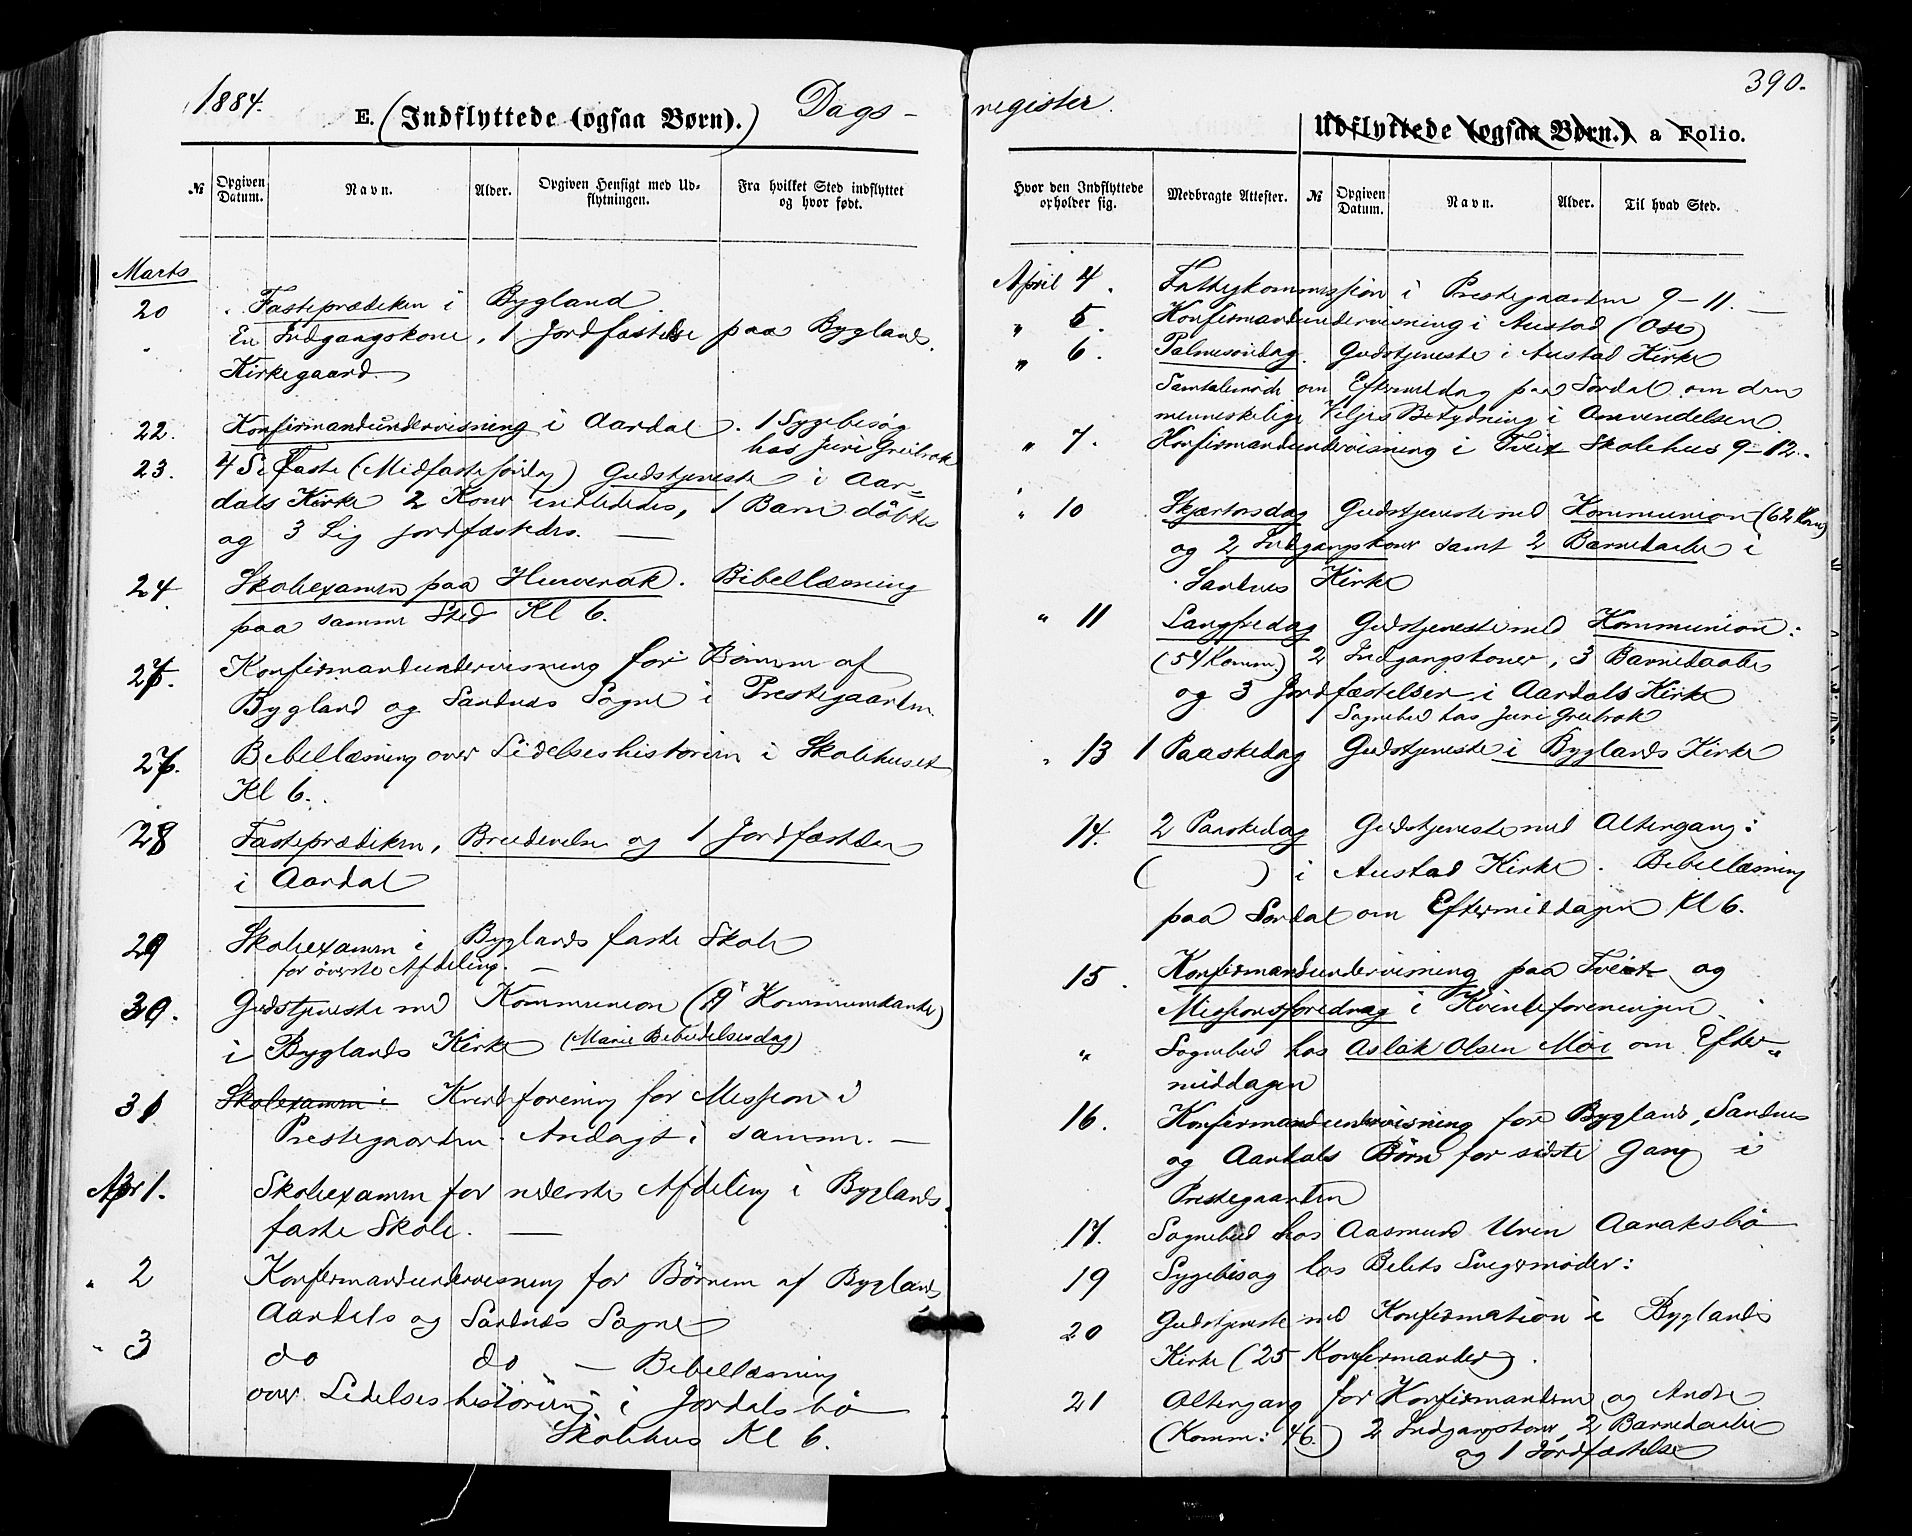 1884.
E. (Indflyttede (ogsaa Børn).) Dags-
№
Opgiven Datum.
Navn.
Alder.
Opgiven Hensigt med Udflytningen.
Fra hvilket Sted indflyttet og hvor født.
Marts
20 Fasteprædiken i Bygland.
En Indgangskone, 1 Jordfæstelse paa Byglands
Kirkegaard.
22. Konfirmandundervisning i Aardal. 1 Sygebesøg
hos Juri Greibrok
23. 4 S i Faste (Midfastesøndag) Gudstjeneste i Aar-
dals Kirke 2 Koner indlededes, 1 Barn döbtes
og 3 Lig jordfæstedes. —
24. Skoleexamen paa Hurverak. Bibellæsning
paa samme Sted Kl 6.
Konfirmandundervisning for Börnene af
Bygland og Sandnes Sogne i Prestegaarden
Bibellæsning over Lidelseshistorien i Skolehuset
Kl 6.
28 Fasteprædiken, Brudevielse og 1 Jordfæstelse
i Aardal
29 Skoleexamen i Byglands faste Skole
for överste Afdeling. —
30. Gudstjeneste med Kommunion (9 Kommunikanter)
i Byglands Kirke (Mariæ Bebudelsesdag)
31 Skolexamen i Kvindeforening for Mission i
Prestegaarden. Andagt i samme. —
Apr 1. Skoleexamen for nederste Afdeling i Byglands
faste Skole. —
" 2 Konfirmandundervisning for Börnene af Byglands
Aardals og Sandnes Sogne
" 3 do do — Bibellæsning
over Lidelseshistorien i Jordalsbö
Skolehus Kl 6.
390.
register.
Udflyttede (ogsaa Børn.) a Folio.
Hvor den Indflyttede opholder sig.
Medbragte Attester.
№
Opgiven Datum.
Navn.
Alder.
Til hvad Sted.
April 4. Fattigkommission i Prestegaarden 9–11. —
" 5. Konfirmandundervisning i Austad (Ose)
" 6. Palmesöndag. Gudstjeneste i Austad Kirke
Samtalemöde om Eftermiddag paa Sordal om den
menneskelige Viljes Betydning i Omvendelsen.
" 7. Konfirmandundervisning i Tveit Skolehus 9–12.
" 10 Skjærtorsdag Gudstjeneste med Kommunion (62 Kom)
og 2 Indgangskoner samt 2 Barnedaabe i
Sandnes Kirke
" 11 Langfredag Gudstjeneste med Kommunion:
(54 Komm.) 2 Indgangskoner, 3 Barnedaabe
og 3 Jordfæstelser i Aardals Kirke
Sognebud hos Juri Greibrok
" 13 1 Paaskedag Gudstjeneste i Byglands Kirke
14. 2 Paaskedag Gudstjeneste med Altergang:
( ) i Austad Kirke. Bibellæsning
paa Sordal om Eftermiddagen Kl 6.
15. Konfirmandundervisning paa Tveit og
Missionsforedrag i Kvindeforeningen.
" Sognebud hos Aslak Olsen Moi om Efter-
middagen
16. Konfirmandundervisning for Bygland, Sandnes
og Aardals Börn for sidste Gang i
Prestegaarden
17. Sognebud hos Aasmund Uren Aaraksbö
19 Sygebesøg hos Svigermoder:
20 Gudstjeneste med Konfirmation i Byglands
Kirke (25 Konfirmander).
21 Altergang for Konfirmanderne og Andre
(Komm: 46.) 2 Indgangskoner, 2 Barnedaabe
og 1 Jordfæstelse